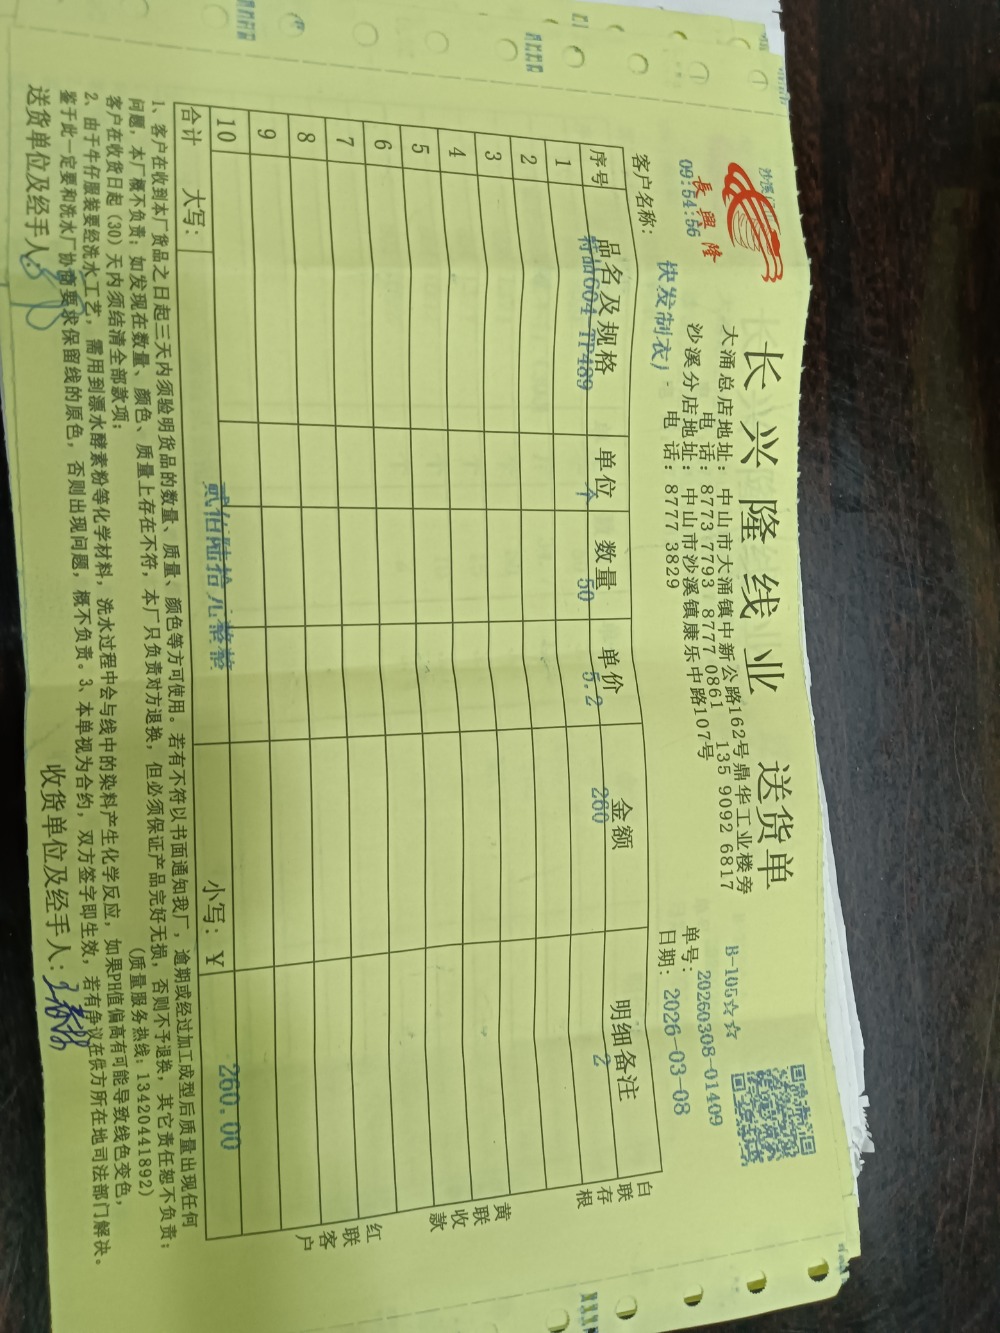 长兴隆线业 送货单
長興隆
B-105☆☆
大涌总店地址：中山市大涌镇中新公路162号鼎华工业楼旁
电 话：8773 7793 8777 0861 135 9092 6817
沙溪分店地址：中山市沙溪镇康乐中路107号
电 话：8777 3829
09:54:56
单号：20260308-01409
客户名称：快发制衣)
日期：2026-03-08
序号 品名及规格 单位 数量 单价 金额 明细备注
1 特品604 TP489 个 50 5.2 260 2
2
3
4
5
6
7
8
9
10
合计 大写：贰佰陆拾元整 小写：￥ 260.00
白联存根
黄联收款
红联客户
1、客户在收到本厂货品之日起三天内须验明货品的数量、质量、颜色等方可使用。若有不符以书面通知我厂，逾期或经过加工成型后质量出现任何
问题，本厂概不负责；如发现在数量、颜色、质量上存在不符，本厂只负责对方退换，但必须保证产品完好无损，否则不予退换，其它责任恕不负责；
客户在收货日起（30）天内须结清全部款项； （质量服务热线：13420441892）
2、由于牛仔服装要经洗水工艺，需用到漂水酵素粉等化学材料，洗水过程中会与线中的染料产生化学反应，如果PH值偏高有可能导致线色变色，
鉴于此一定要和洗水厂协商要求保留线的原色，否则出现问题，概不负责。3、本单视为合约，双方签字即生效，若有争议在供方所在地司法部门解决。
送货单位及经手人： 收货单位及经手人：